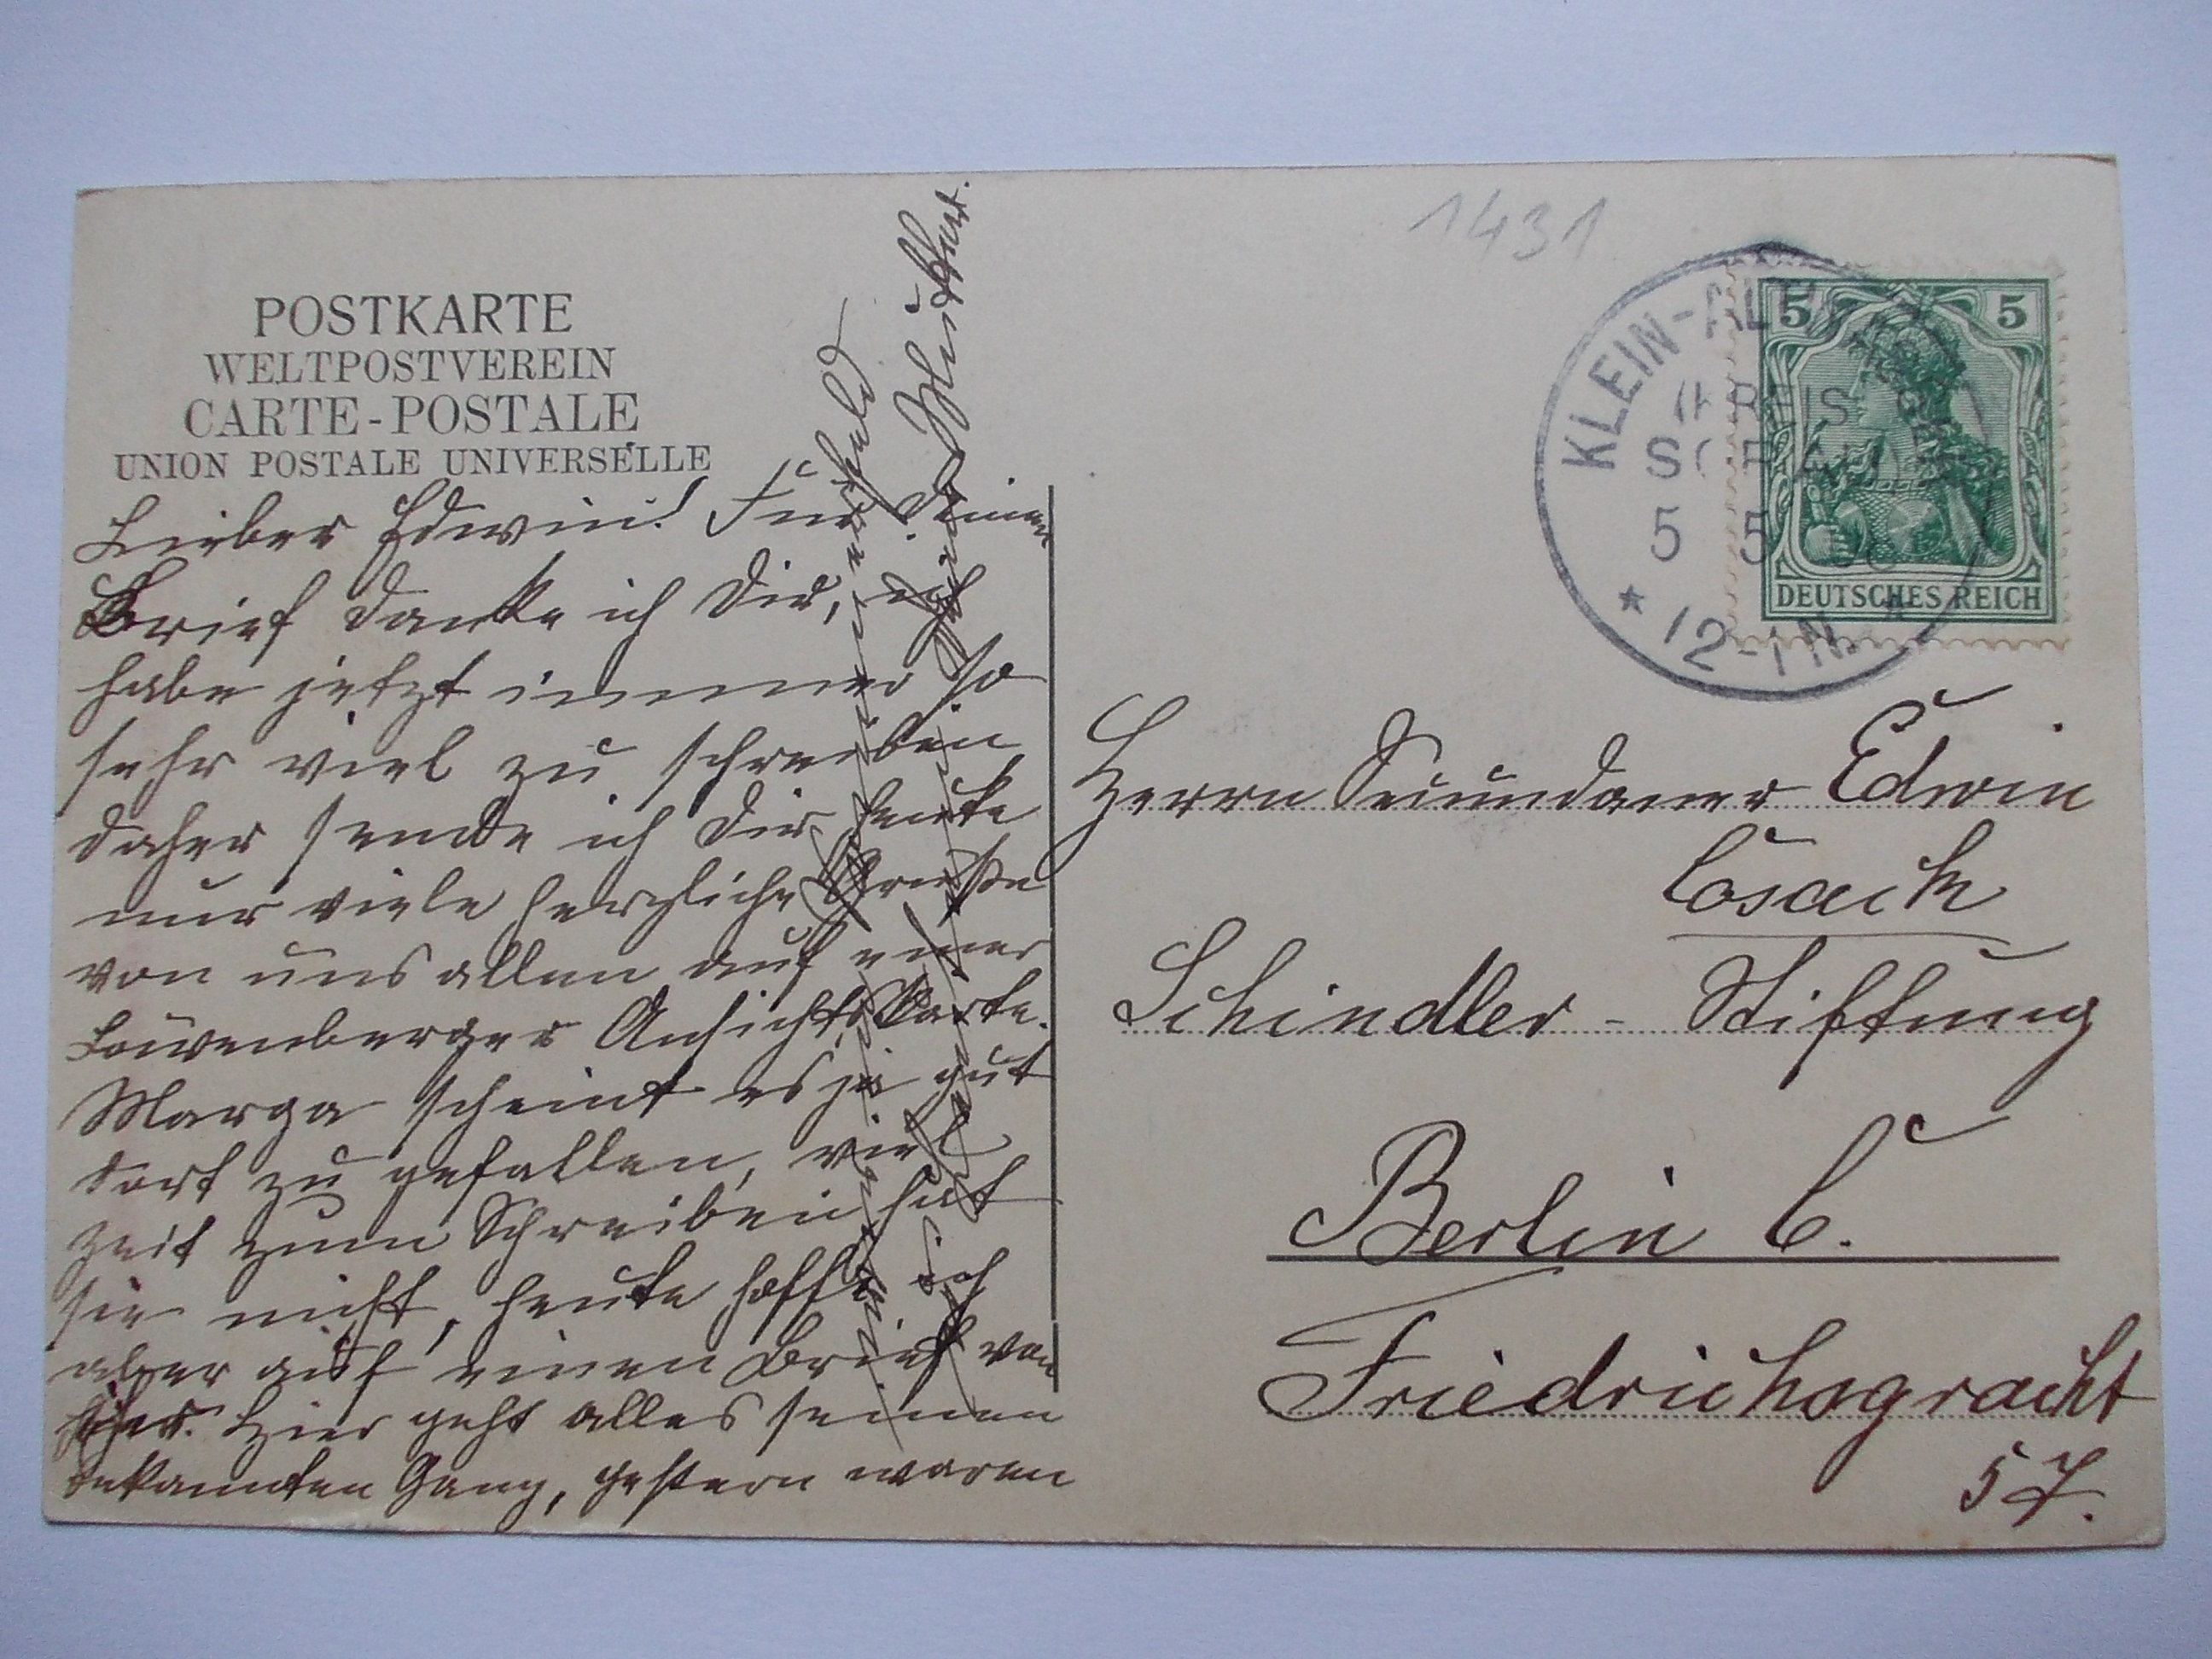 1431
POSTKARTE
WELTPOSTVEREIN
CARTE-POSTALE
UNION POSTALE UNIVERSELLE
5 5
DEUTSCHES REICH
KLEIN-ALT
(KREIS
SORAU
5 5
* 12-1N. *
Lieber Edwin! Für Deinen
Brief danke ich Dir, ich
habe jetzt immer so
sehr viel zu schreiben,
daher sende ich Dir heute
nur viele herzliche Grüße
von uns allen auf einer
Löwenberger Ansichtskarte.
Marga scheint es ja gut
dort zu gefallen, viel
Zeit zum Schreiben hat
sie nicht, heute hoffe ich
aber auf einen Brief von
ihr. Hier geht alles seinen
bekannten Gang, gestern waren
Herrn Secundaner Edwin
Cosack
Schindler-Stiftung
Berlin C.
Friedrichsgracht
57.